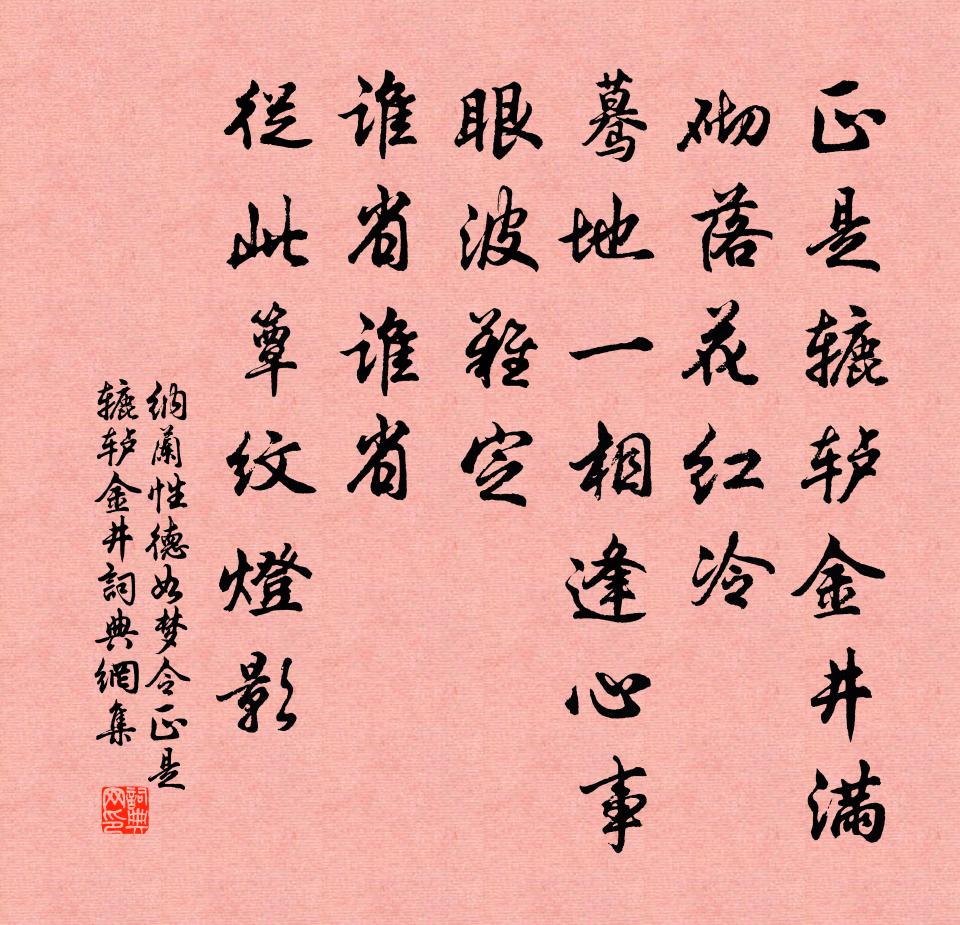 正是辘轳金井满
砌落花红冷
蓦地一相逢心事
眼波難定
谁省谁省
從此簟紋燈影
纳蘭性德如梦令正是
辘轳金井詞典網集
詞典
网印